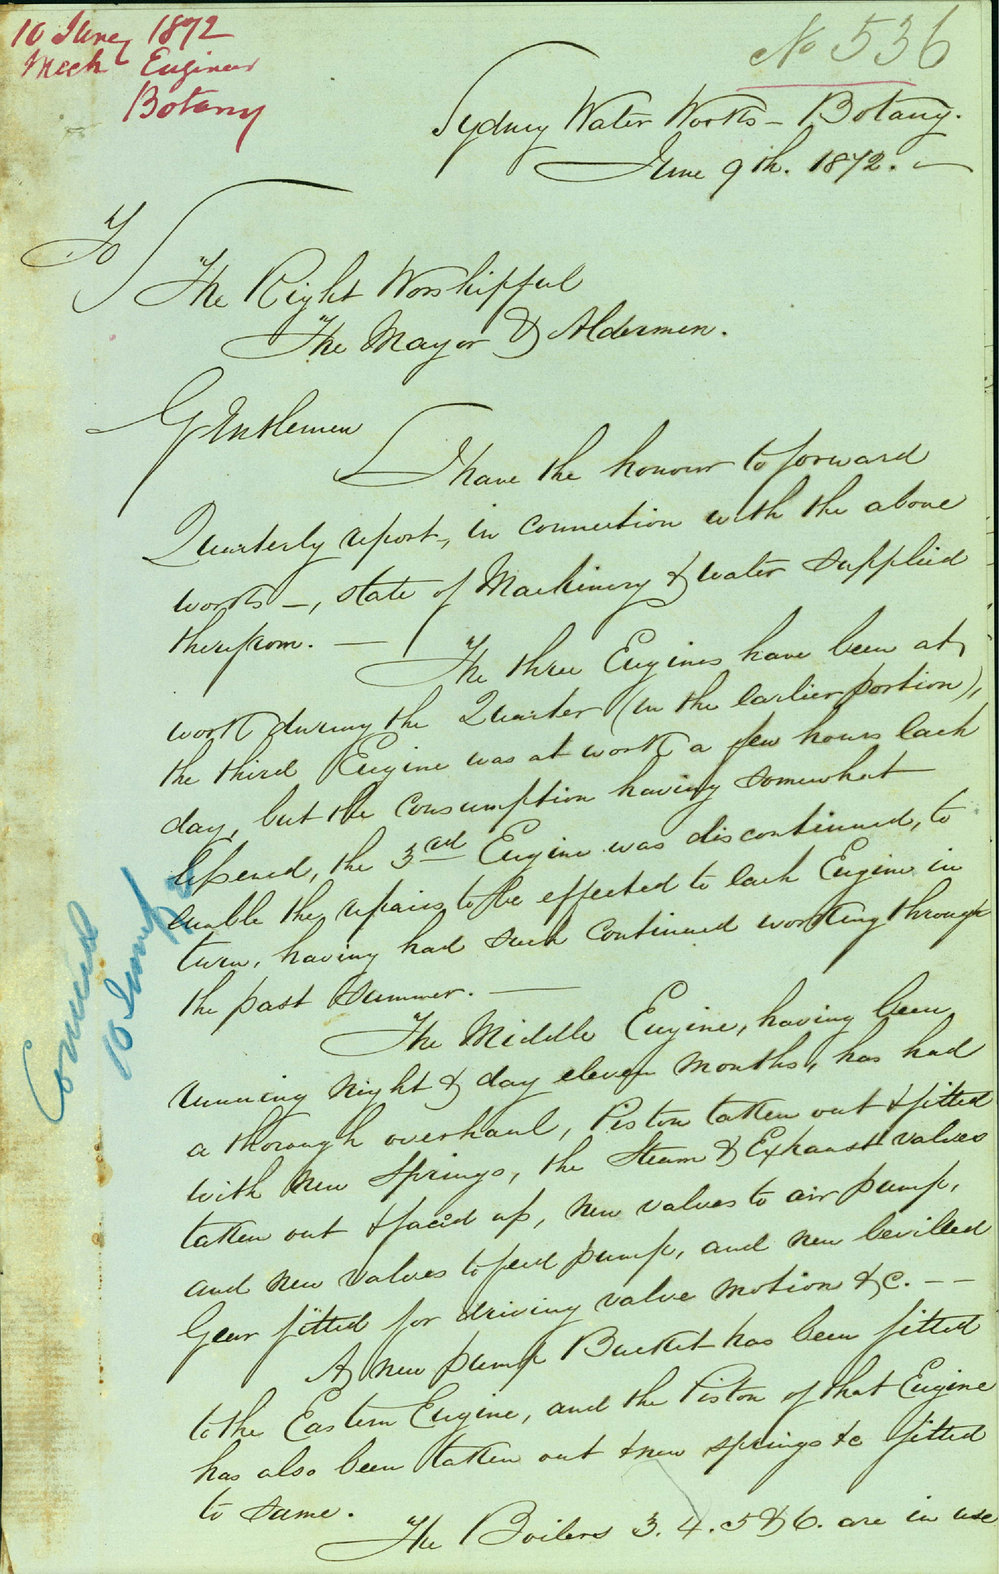 10 June 1872
Mech Engineer
Botany
No 536
Sydney Water Works - Botany.
June 9th. 1872. -
To
The Right Worshipful
The Mayor & Aldermen.
Gentlemen
I have the honour to forward
Quarterly report, in connection with the above
works -, state of Machinery & water supplied
therefrom. -
The three Engines have been at
work during the Quarter (in the earlier portion),
the third Engine was at work a few hours each
day, but the Consumption having somewhat
lessened, the 3rd Engine was discontinued, to
enable the repairs to be effected to each Engine in
turn, having had such Continued working through
the past Summer. -
The Middle Engine, having been
running night & day eleven months, has had
a thorough overhaul, Piston taken out & fitted
with new Springs, the Steam & Exhaust valves
taken out & faced up, new valves to air pump,
and new valves to feed pump, and new bevilled
Gear fitted for driving valve motion &c. - -
A new pump Bucket has been fitted
to the Eastern Engine, and the Piston of that Engine
has also been taken out & new springs &c fitted
to same.
The Boilers 3. 4. 5 & 6. are in use
Council
10 June 72